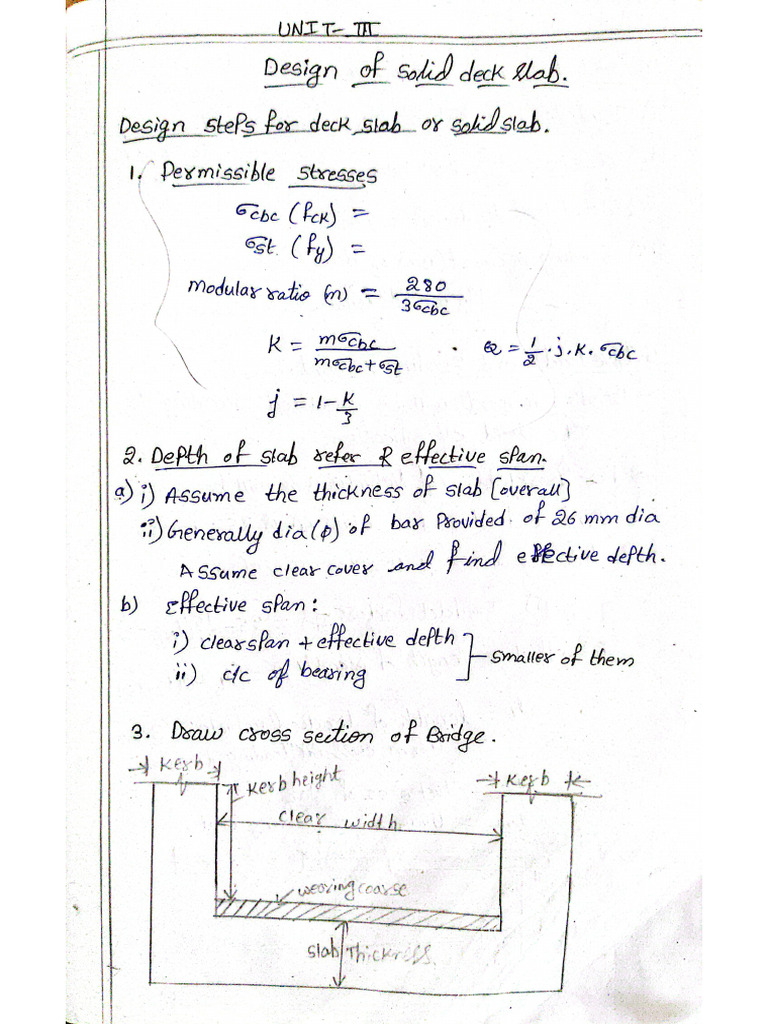 UNIT-III
Design of solid deck slab.
Design steps for deck slab or solid slab.
1. Permissible stresses
σcbc (fck) =
σst. (fy) =
modular ratio (m) = 280 / 3σcbc
K = mσcbc / mσcbc + σst . Q = 1/2 . j . K . σcbc
j = 1 - K/3
2. Depth of slab refer & effective span.
a) i) Assume the thickness of slab [overall]
ii) Generally dia (φ) of bar provided of 26 mm dia
Assume clear cover and find effective depth.
b) Effective span:
i) clear span + effective depth
ii) c/c of bearing
smaller of them
3. Draw cross section of Bridge.
Kerb
Kerb height
Kerb
clear width
wearing coarse
slab Thickness